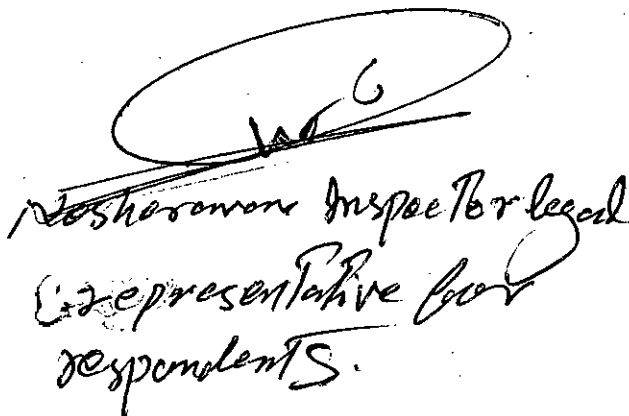 Nosherawan Inspector legal
representative for
respondents.